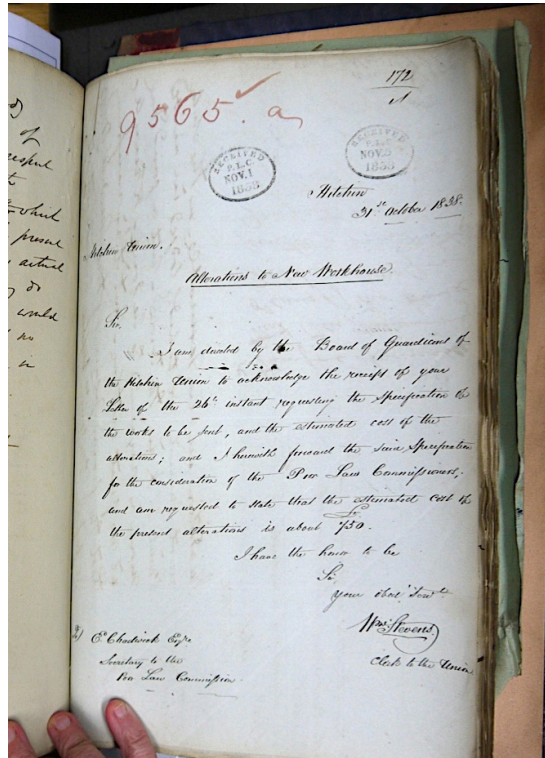 172
A
9565. a
RECEIVED
P.L.C.
NOV. 1
1838
RECEIVED
P.L.C.
NOV.
1838
Hitchin
31st October 1838.
Hitchin Union.
Alterations to New Workhouse.
Sir,
I am directed by the Board of Guardians of
the Hitchin Union to acknowledge the receipt of your
Letter of the 26th instant requesting the Specification of
the works to be sent, and the estimated cost of the
alterations; and I herewith forward the said Specification
for the consideration of the Poor Law Commissioners;
and am requested to state that the estimated cost of
the present alterations is about £750.
I have the honor to be
Sir,
your obedt. Servt.
Wm. Stevens.
Clerk to the Union
E. Chadwick Esqre
Secretary to the
Poor Law Commission
of
which
present
actual
would
no
in